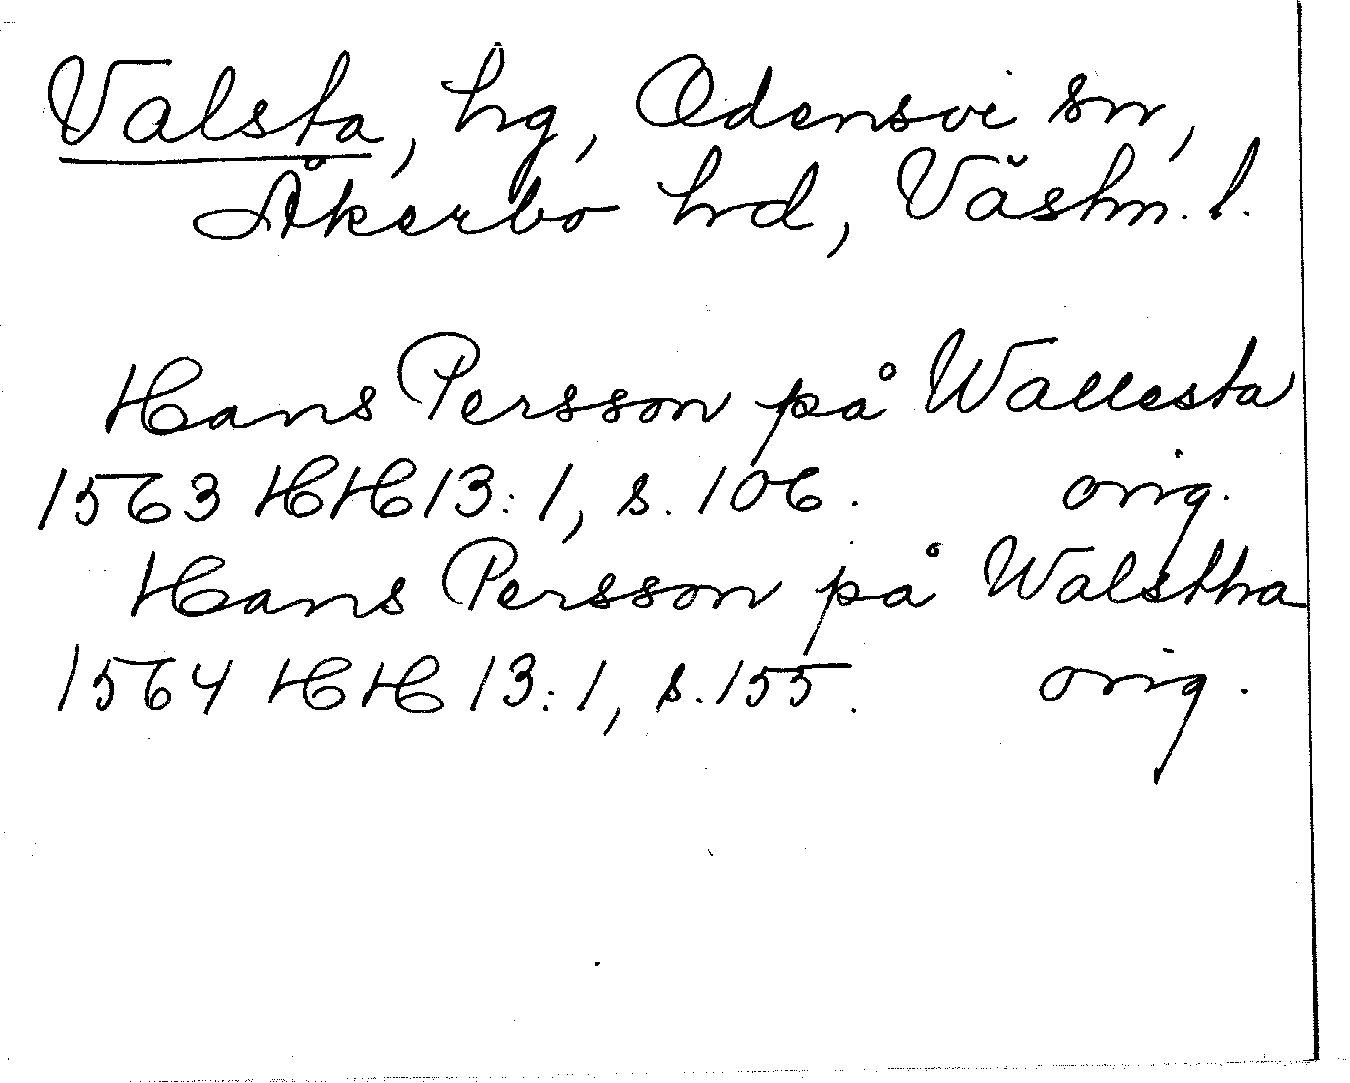 Valsta, hg, Odensvi sn,
Åkerbo hrd, Västm. l.
Hans Persson på Wallesta
1563 HH 13:1, s. 106. orig.
Hans Persson på Walstha
1564 HH 13:1, s. 155. orig.